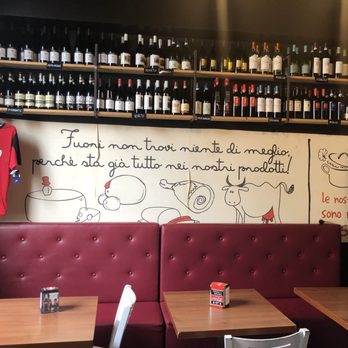 Fuori non trovi niente di meglio,
perchè sta già tutto nei nostri prodotti!
le nos
sono